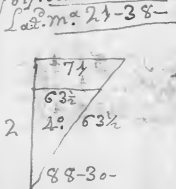 Lad. m.ª 21-38-
71
63½
2 4.º 63½
88-30-